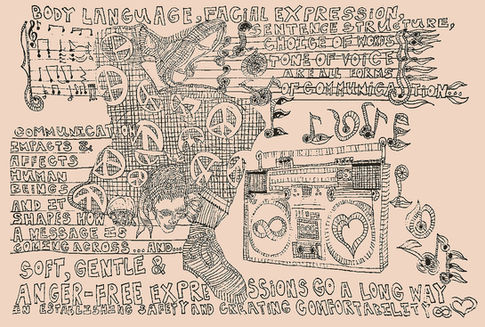 BODY LANGUAGE, FACIAL EXPRESSION,
SENTENCE STRUCTURE,
CHOICE OF WORDS
TONE OF VOICE
ARE ALL FORMS
OF COMMUNICATION...
LOVE
COMMUNICATION
IMPACTS &
AFFECTS
HUMAN
BEINGS
AND IT
SHAPES HOW
A MESSAGE IS
COMING ACROSS...AND...
SOFT, GENTLE &
ANGER-FREE EXPRESSIONS GO A LONG WAY
IN ESTABLISHING SAFETY AND CREATING COMFORTABILITY